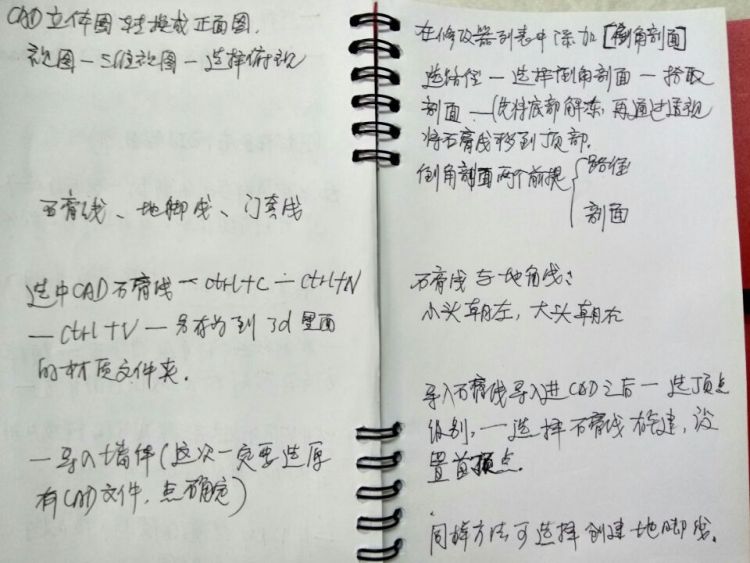 CAD立体图转换成正面图.
视图—三维视图—选择俯视
石膏线、地脚线、门套线
选中CAD石膏线—ctrl+C—Ctrl+N
—Ctrl+V—另存为到3d里面
的材质文件夹.
—导入t墙体(这次一定要选原
有CAD文件.点确定)
在修改器列表中添加[倒角剖面]
选路径—选择倒角剖面—拾取
剖面—(先将底部解冻,再通过透视
将石膏线移到顶部.
倒角剖面两个前提{路径
剖面
石膏线与地角线:
小头朝左,大头朝右
导入石膏线导入进CAD之后—选顶点
级别,—选择石膏线 设
置首顶点.
同样方法可选择创建地脚线.